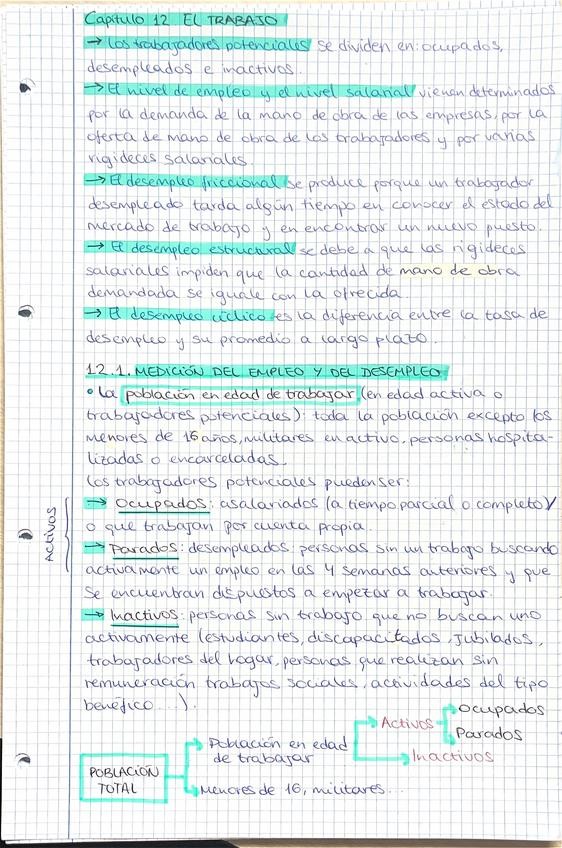 Capítulo 12 EL TRABAJO
→ Los trabajadores potenciales se dividen en: ocupados,
desempleados e inactivos.
→ El nivel de empleo y el nivel salarial vienen determinados
por la demanda de la mano de obra de las empresas, por la
oferta de mano de obra de los trabajadores y por varias
rigideces salariales.
→ El desempleo friccional se produce porque un trabajador
desempleado tarda algún tiempo en conocer el estado del
mercado de trabajo y en encontrar un nuevo puesto.
→ El desempleo estructural se debe a que las rigideces
salariales impiden que la cantidad de mano de obra
demandada se iguale con la ofrecida.
→ El desempleo cíclico es la diferencia entre la tasa de
desempleo y su promedio a largo plazo.
12.1. MEDICIÓN DEL EMPLEO Y DEL DESEMPLEO
• La población en edad de trabajar (en edad activa o
trabajadores potenciales): toda la población excepto los
menores de 16 años, militares en activo, personas hospita-
lizadas o encarceladas.
Los trabajadores potenciales pueden ser:
→ Ocupados: asalariados (a tiempo parcial o completo)
o que trabajan por cuenta propia.
→ Parados: desempleados: personas sin un trabajo buscando
activamente un empleo en las 4 semanas anteriores y que
se encuentran dispuestos a empezar a trabajar.
ACTIVOS
→ Inactivos: personas sin trabajo que no buscan uno
activamente (estudiantes, discapacitados, jubilados,
trabajadores del hogar, personas que realizan sin
remuneración trabajos sociales, actividades del tipo
benéfico...).
POBLACIÓN
TOTAL
Población en edad
de trabajar
Menores de 16, militares...
Activos
Inactivos
Ocupados
Parados